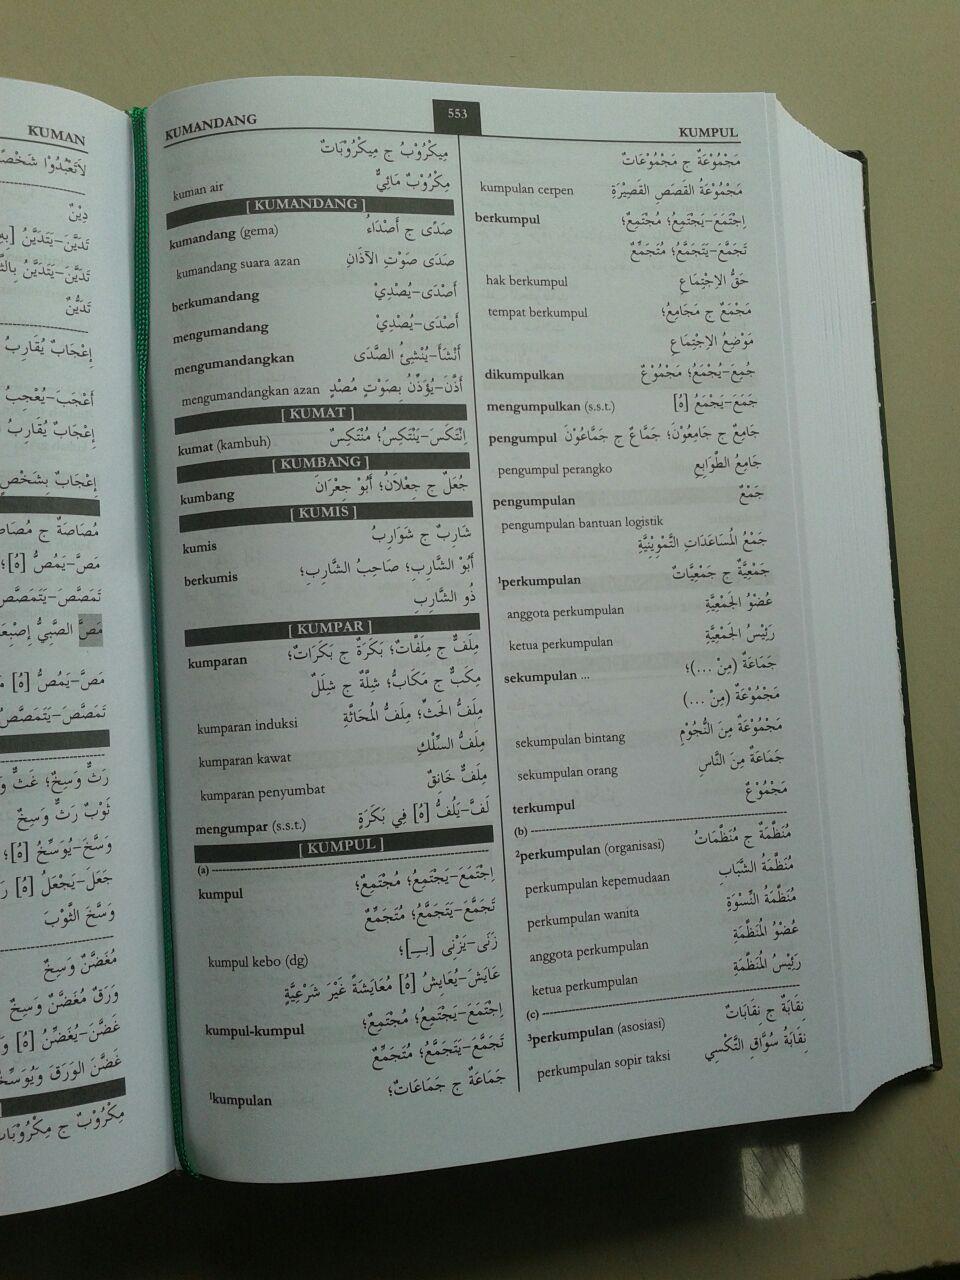 KUMAN
لَاتَعْبُدُوْا
دِيْنٌ
تَدَيَّنَ-يَتَدَيَّنُ
تَدَيَّنَ-يَتَدَيَّنُ
تَدَيُّنٌ
إِعْجَابٌ يُقَارِبُ
أَعْجَبَ-يُعْجِبُ
إِعْجَابٌ يُقَارِبُ
إِعْجَابٌ بِشَخْصٍ
مُصَاصَةٌ ج
مَصَّ-يَمُصُّ [هُ]؛
تَمَصَّصَ-يَتَمَصَّصُ
مَصَّ الصَّبِيُّ
مَصَّ-يَمُصُّ [هُ]
تَمَصَّصَ-يَتَمَصَّصُ
رَثٌّ وَسِخٌ؛
ثَوْبٌ رَثٌّ وَسِخٌ
وَسَّخَ-يُوَسِّخُ [هُ]؛
جَعَلَ-يَجْعَلُ [هُ]
وَسَّخَ الثَّوْبَ
مُغَضَّنٌ وَسِخٌ
وَرَقٌ مُغَضَّنٌ وَسِخٌ
غَضَّنَ-يُغَضِّنُ [هُ]
غَضَّنَ الوَرَقَ
مِكْرُوْبٌ ج
KUMANDANG 553 KUMPUL
مِيكْرُوْبُ ج مِيكْرُوْبَاتٌ
kuman air مِكْرُوبٌ مَائِيٌّ
[ KUMANDANG ]
kumandang (gema) صَدًى ج أَصْدَاءُ
kumandang suara azan صَدَى صَوْتِ الآذَانِ
berkumandang أَصْدَى-يُصْدِيْ
mengumandang أَصْدَى-يُصْدِيْ
mengumandangkan أَنْشَأَ-يُنْشِئُ الصَّدَى
mengumandangkan azan أَذَّنَ-يُؤَذِّنُ بِصَوْتٍ مُصْدٍ
[ KUMAT ]
kumat (kambuh) اِنْتَكَسَ-يَنْتَكِسُ؛ مُنْتَكِسٌ
[ KUMBANG ]
kumbang جُعَلٌ ج جِعْلَانٌ؛ أَبُوْ جِعْرَانَ
[ KUMIS ]
kumis شَارِبٌ ج شَوَارِبُ
berkumis أَبُوْ الشَّارِبِ؛ صَاحِبُ الشَّارِبِ؛
ذُو الشَّارِبِ
[ KUMPAR ]
kumparan مِلَفٌّ ج مِلَفَّاتٌ؛ بَكَرَةٌ ج بَكَرَاتٌ؛
مِكَبٌّ ج مَكَابُّ؛ شِلَّةٌ ج شِلَلٌ
kumparan induksi مِلَفُّ الحَثِّ؛ مِلَفُّ المُحَاثَّةِ
kumparan kawat مِلَفُّ السِّلْكِ
kumparan penyumbat مِلَفٌّ خَانِقٌ
mengumpar (s.s.t.) لَفَّ-يَلُفُّ [هُ] فِي بَكَرَةٍ
[ KUMPUL ]
(a)
kumpul اِجْتَمَعَ-يَجْتَمِعُ؛ مُجْتَمِعٌ؛
تَجَمَّعَ-يَتَجَمَّعُ؛ مُتَجَمِّعٌ
kumpul kebo (dg) زَنَى-يَزْنِى [بـِـ]؛
عَايَشَ-يُعَايِشُ [هُ] مُعَايَشَةً غَيْرَ شَرْعِيَّةٍ
kumpul-kumpul اِجْتَمَعَ-يَجْتَمِعُ؛ مُجْتَمِعٌ؛
تَجَمَّعَ-يَتَجَمَّعُ؛ مُتَجَمِّعٌ
¹kumpulan جَمَاعَةٌ ج جَمَاعَاتٌ؛
مَجْمُوْعَةٌ ج مَجْمُوْعَاتٌ
kumpulan cerpen مَجْمُوْعَةُ القَصَصِ القَصِيْرَةِ
berkumpul اِجْتَمَعَ-يَجْتَمِعُ؛ مُجْتَمِعٌ؛
تَجَمَّعَ-يَتَجَمَّعُ؛ مُتَجَمِّعٌ
hak berkumpul حَقُّ الاِجْتِمَاعِ
tempat berkumpul مَجْمَعٌ ج مَجَامِعُ؛
مَوْضِعُ الاِجْتِمَاعِ
dikumpulkan جُمِعَ-يُجْمَعُ؛ مَجْمُوْعٌ
mengumpulkan (s.s.t.) جَمَعَ-يَجْمَعُ [هُ]
pengumpul جَامِعٌ ج جَامِعُوْنَ؛ جَمَّاعٌ ج جَمَّاعُوْنَ
pengumpul perangko جَامِعُ الطَّوَابِعِ
pengumpulan جَمْعٌ
pengumpulan bantuan logistik
جَمْعُ المُسَاعَدَاتِ التَّمْوِيْنِيَّةِ
¹perkumpulan جَمْعِيَّةٌ ج جَمْعِيَّاتٌ
anggota perkumpulan عُضْوُ الجَمْعِيَّةِ
ketua perkumpulan رَئِيْسُ الجَمْعِيَّةِ
sekumpulan ... جَمَاعَةٌ (مِنْ ...)؛
مَجْمُوْعَةٌ (مِنْ ...)
sekumpulan bintang مَجْمُوْعَةٌ مِنَ النُّجُوْمِ
sekumpulan orang جَمَاعَةٌ مِنَ النَّاسِ
terkumpul مَجْمُوْعٌ
(b)
²perkumpulan (organisasi) مُنَظَّمَةٌ ج مُنَظَّمَاتٌ
perkumpulan kepemudaan مُنَظَّمَةُ الشَّبَابِ
perkumpulan wanita مُنَظَّمَةُ النِّسْوَةِ
anggota perkumpulan عُضْوُ المُنَظَّمَةِ
ketua perkumpulan رَئِيْسُ المُنَظَّمَةِ
(c)
³perkumpulan (asosiasi) نِقَابَةٌ ج نِقَابَاتٌ
perkumpulan sopir taksi نِقَابَةُ سُوَّاقِ التَّكْسِي